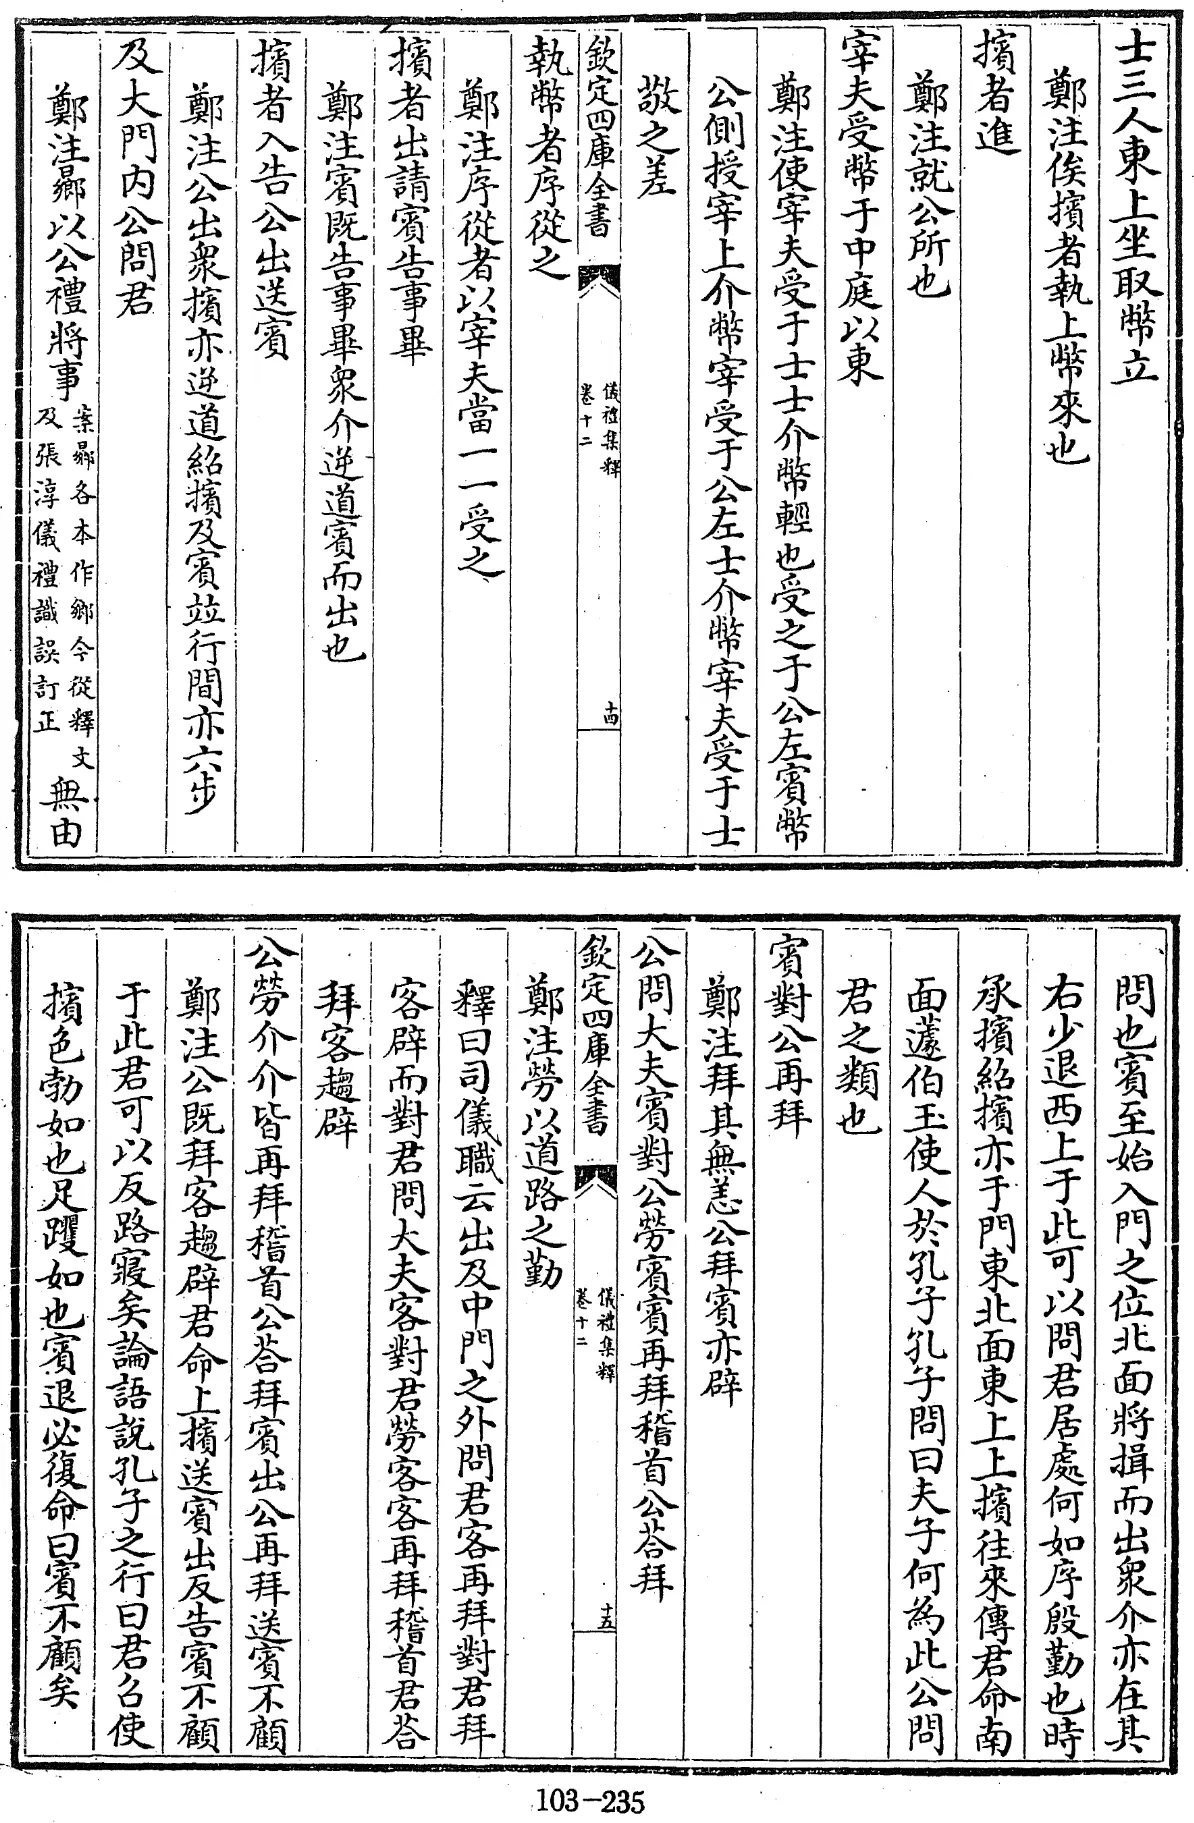 士三人東上坐取幣立
鄭注俟擯者執上幣來也
擯者進
鄭注就公所也
宰夫受幣于中庭以東
鄭注使宰夫受于士士介幣輕也受之于公左賓幣
公側授宰上介幣宰受于公左士介幣宰夫受于士
敬之差
欽定四庫全書
儀禮集釋
卷十二
十四
執幣者序從之
鄭注序從者以宰夫當一一受之
擯者出請賓告事畢
鄭注賓既告事畢衆介逆道賓而出也
擯者入告公出送賓
鄭注公出衆擯亦逆道紹擯及賓竝行間亦六步
及大門内公問君
鄭注曏以公禮將事
案曏各本作鄉今從釋文
及張淳儀禮識誤訂正
無由
問也賓至始入門之位北面將揖而出衆介亦在其
右少退西上于此可以問君居處何如序殷勤也時
承擯紹擯亦于門東北面東上上擯往來傳君命南
面蘧伯玉使人於孔子孔子問曰夫子何為此公問
君之類也
賓對公再拜
鄭注拜其無恙公拜賓亦辟
公問大夫賓對公勞賓賓再拜稽首公荅拜
欽定四庫全書
儀禮集釋
卷十二
十五
鄭注勞以道路之勤
釋曰司儀職云出及中門之外問君客再拜對君拜
客辟而對君問大夫客對君勞客客再拜稽首君荅
拜客趨辟
公勞介介皆再拜稽首公荅拜賓出公再拜送賓不顧
鄭注公既拜客趨辟君命上擯送賓出反告賓不顧
于此君可以反路寢矣論語說孔子之行曰君召使
擯色勃如也足躩如也賓退必復命曰賓不顧矣
103-235